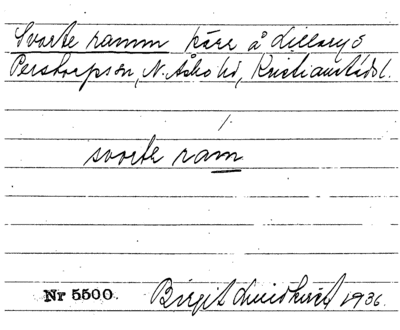 Svarte ramm kärr å Lillaryd
Perstorpsön, N. Åsbo hd, Kristianstads l.
/
svarte ram
Nr 5500. Birgit Lundkvist 1936.